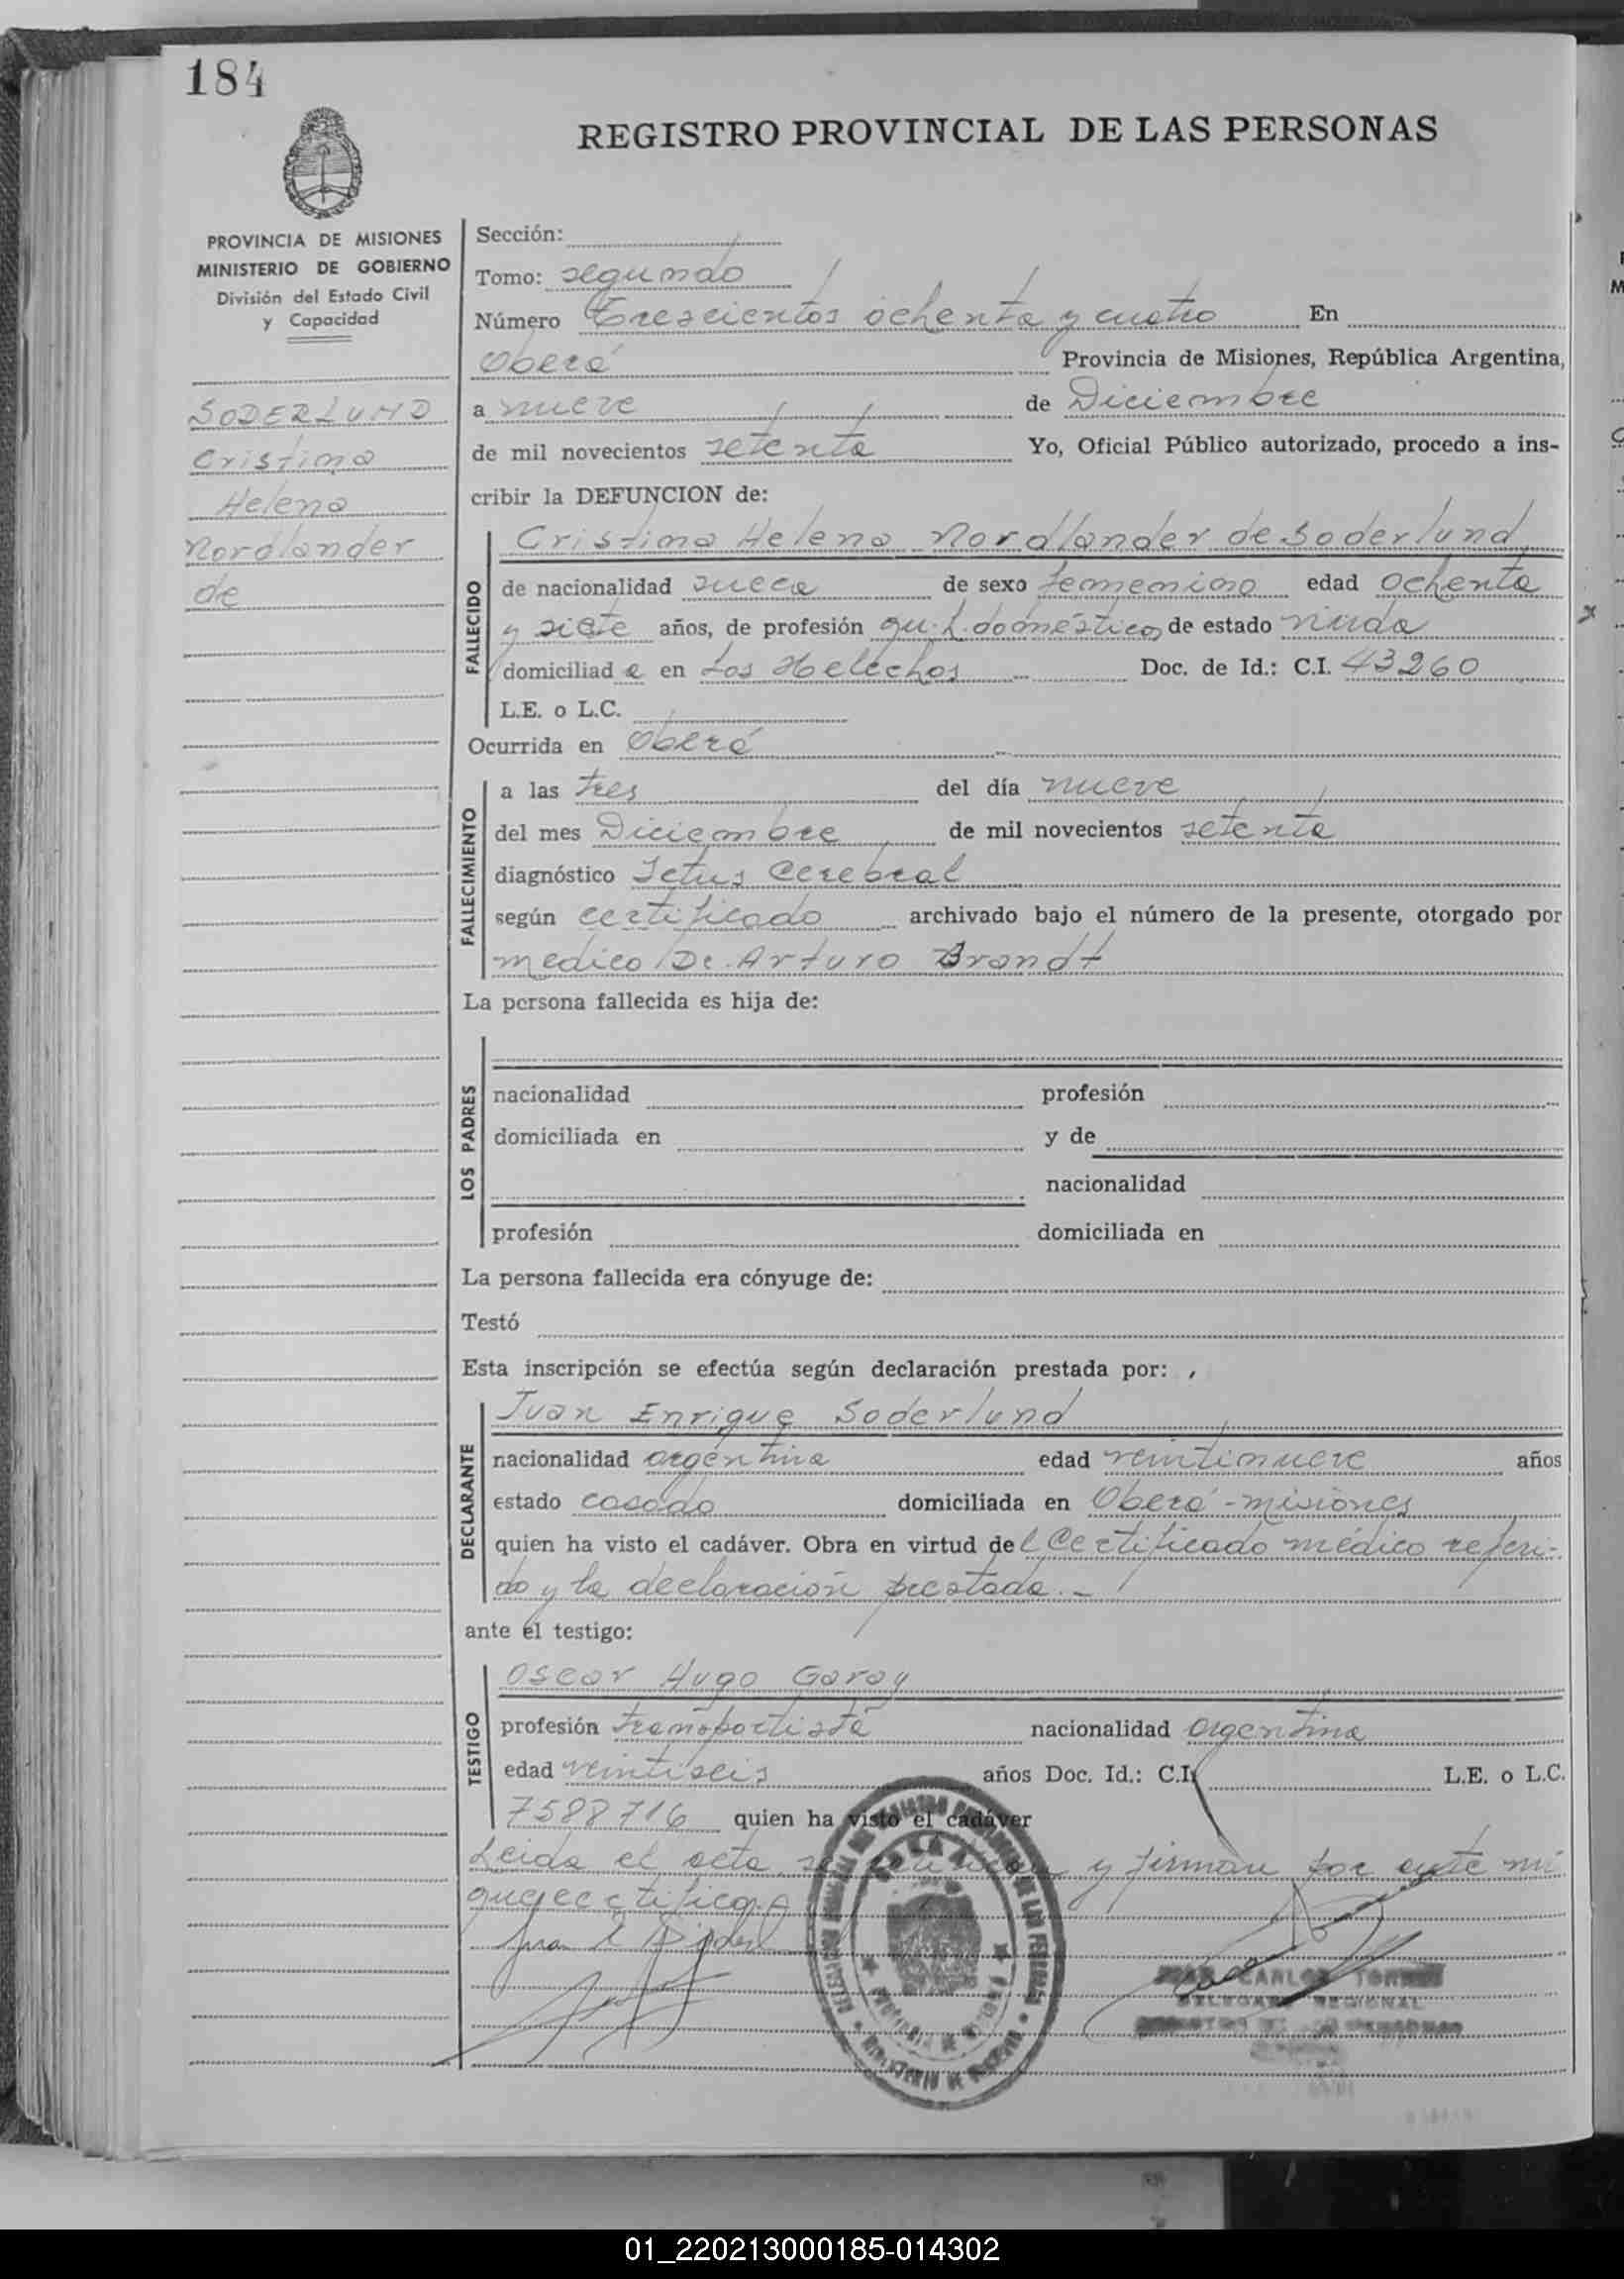 184
REGISTRO PROVINCIAL DE LAS PERSONAS
PROVINCIA DE MISIONES
MINISTERIO DE GOBIERNO
División del Estado Civil
y Capacidad
SODERLUND
Cristina
Helena
Nordlander
de
Sección:
Tomo: segundo
Número Trescientos ochenta y cuatro En
Oberá Provincia de Misiones, República Argentina,
a nueve de Diciembre
de mil novecientos setenta Yo, Oficial Público autorizado, procedo a ins-
cribir la DEFUNCION de:
FALLECIDO
Cristina Helena Nordlander de Soderlund
de nacionalidad sueca de sexo femenino edad ochenta
y siete años, de profesión qu. h. domésticos de estado viuda
domiciliad a en Los Helechos Doc. de Id.: C.I. 43260
L.E. o L.C.
Ocurrida en Oberá
FALLECIMIENTO
a las tres del día nueve
del mes Diciembre de mil novecientos setenta
diagnóstico Ictus Cerebral
según certificado archivado bajo el número de la presente, otorgado por
medico Dr. Arturo Brandt
La persona fallecida es hija de:
LOS PADRES
nacionalidad profesión
domiciliada en y de
nacionalidad
profesión domiciliada en
La persona fallecida era cónyuge de:
Testó
Esta inscripción se efectúa según declaración prestada por:
DECLARANTE
Juan Enrique Soderlund
nacionalidad argentina edad veintinueve años
estado casado domiciliada en Oberá - misiones
quien ha visto el cadáver. Obra en virtud del Certificado médico referi-
do y la declaración prestada.-
ante el testigo:
TESTIGO
Oscar Hugo Garay
profesión transportista nacionalidad argentina
edad veintiseis años Doc. Id.: C.I. L.E. o L.C.
7588716 quien ha visto el cadáver
Leida el acta, se y firman por ante mi
que certifico.
CARLOS TORRES
DELEGADO REGIONAL
01_220213000185-014302